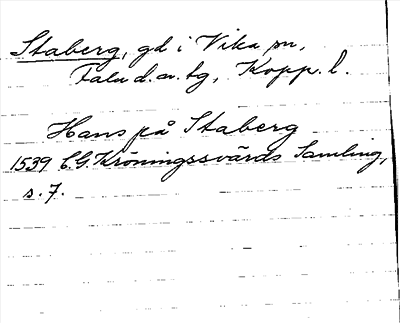 Staberg, gd i Vika sn,
Falu d.a. tg, Kopp. l.
Hans på Staberg
1539 C.G. Kröningssvärds Samling,
s. 7.